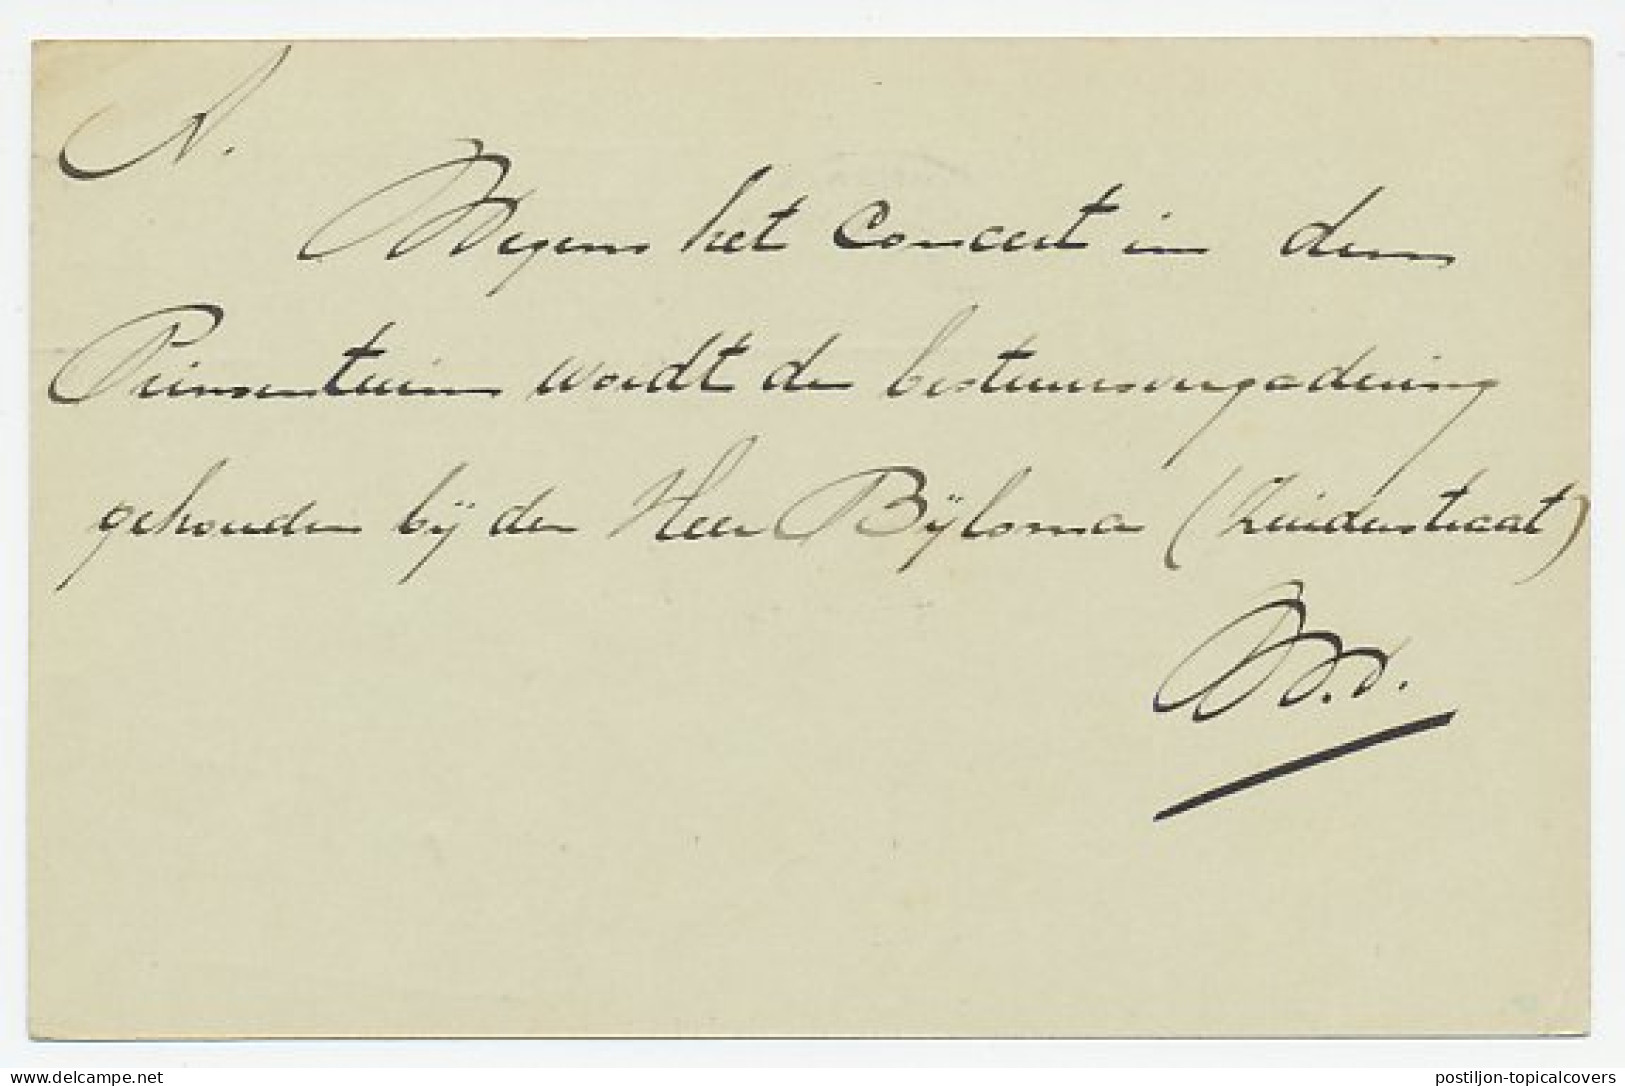 N.
Wegens het Concert in den
Prinsentuin wordt de bestuursvergadering
gehouden bij den Heer Bijlsma (Zuiderstraat)
delcampe.net
postiljon-topicalcovers